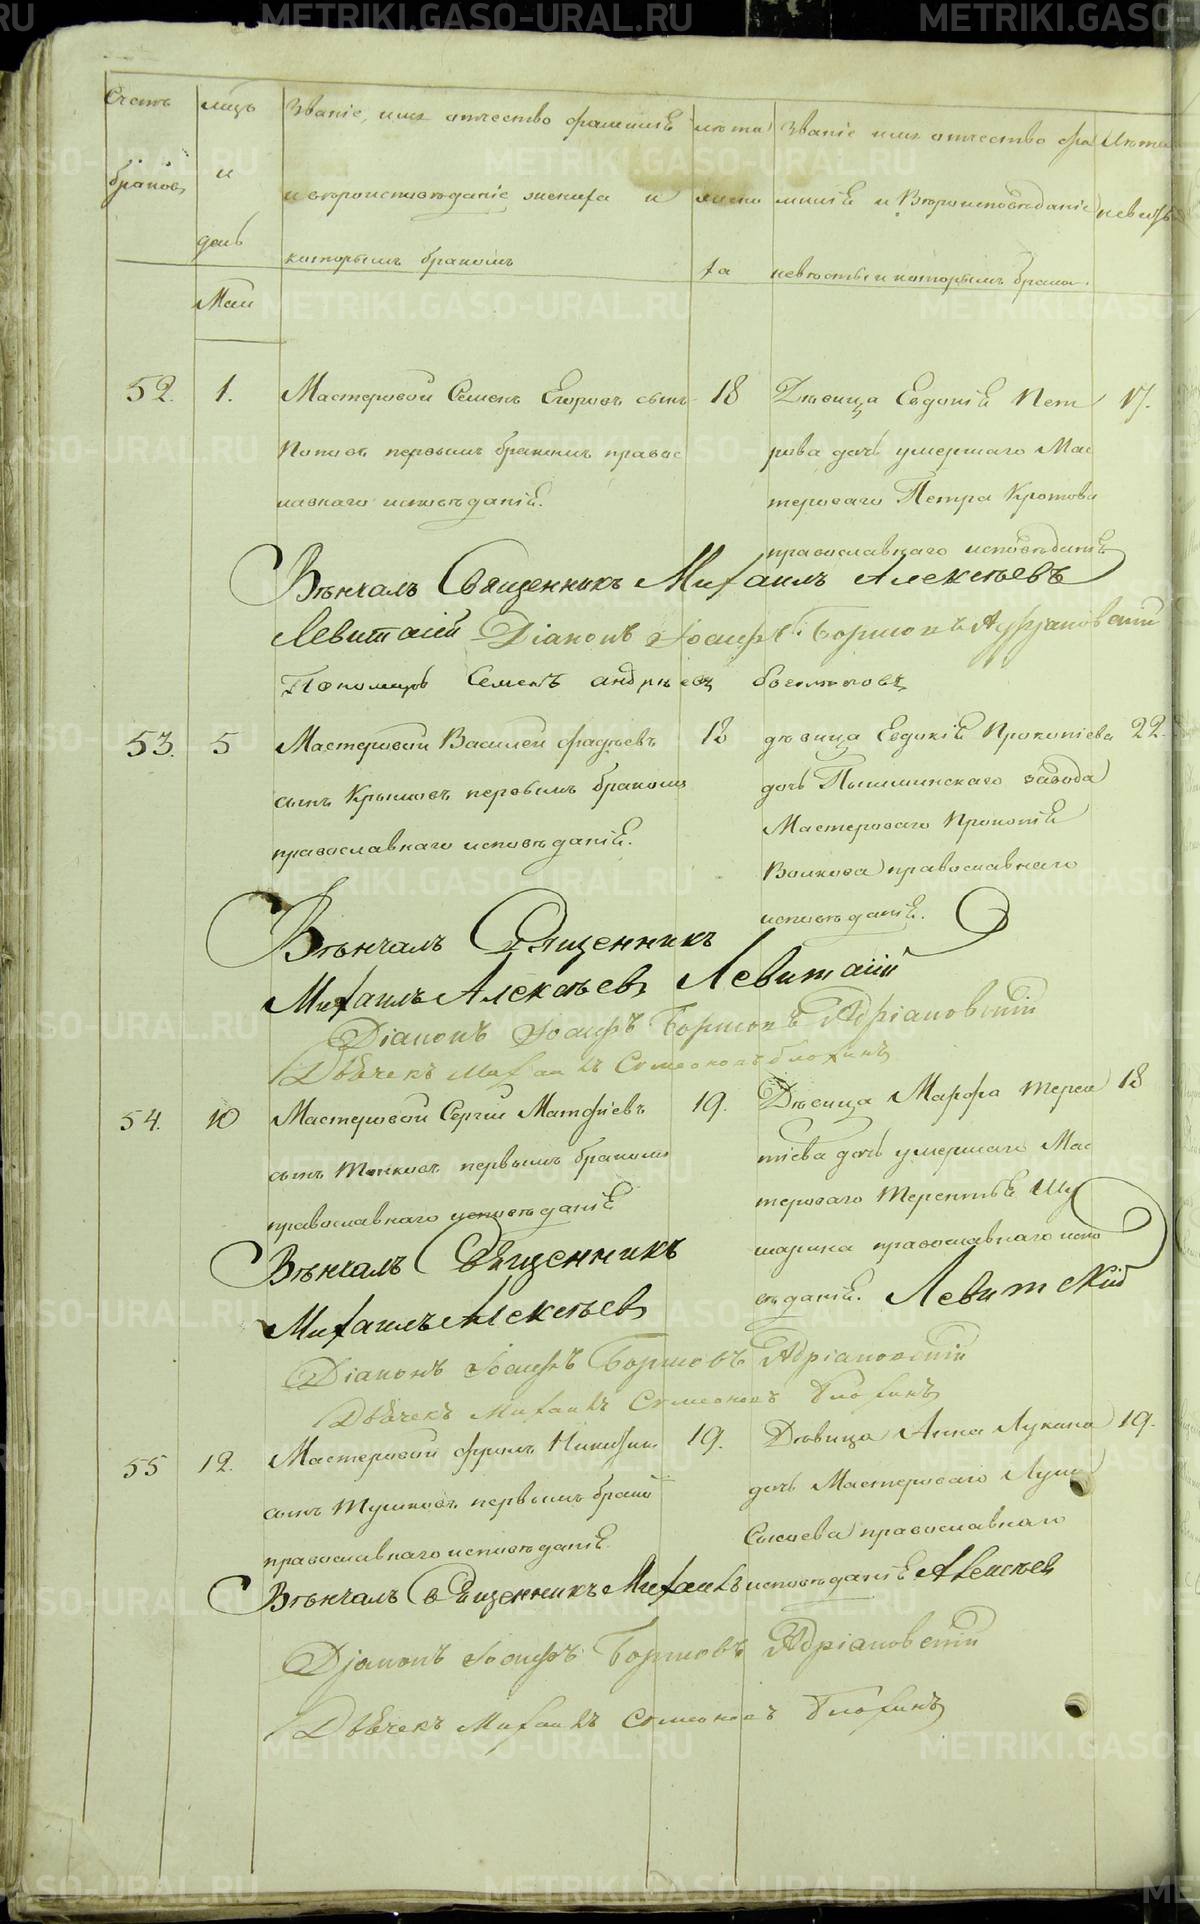 Счетъ
браковъ
мцъ
и
день
Званіе, имя отчество фамилія
и вѣроисповѣданіе жениха и
которымъ бракомъ
лѣта
жени
ха
Званіе имя отчество фа
милія и вѣроисповѣданіе
невѣсты и которымъ бракомъ.
Лѣта
невѣсты
Маи
52. 1. Мастеровой Семенъ Егоровъ сынъ 18 Дѣвица Евдокія Пет 17.
Поповъ первымъ бракомъ правос рова дочь умершаго Мас
лавнаго исповѣданія. тероваго Петра Кротова
православнаго исповѣданія
Вѣнчалъ Священникъ Михаилъ Алексѣевъ
Левитскій Діаконъ Іосифъ Адріановскій
Пономарь Семенъ Андрѣевъ
53. 5 Мастеровой Василей Фадѣевъ 18 дѣвица Евдокія Прокопіева 22.
сынъ Крымовъ первымъ бракомъ дочь Пышминскаго завода
православнаго исповѣданія. Мастероваго Прокопія
Волкова православнаго
исповѣданія.
Вѣнчалъ Священникъ
Михаилъ Алексѣевъ Левитскій
Діаконъ Іосифъ Адріановскій
Дьячекъ Михаилъ Симеоновъ Блохинъ
54. 10 Мастеровой Сергій Матфіевъ 19. Дѣвица Марфа Терен 18
сынъ первымъ бракомъ тіева дочь умершаго Мас
православнаго исповѣданія тероваго Терентія Шу
шарина православнаго испо
вѣданія. Левитскій
Вѣнчалъ Священникъ
Михаилъ Алексѣевъ
Діаконъ Іосифъ Адріановскій
Дьячекъ Михаилъ Симеоновъ Блохинъ
55 12. Мастеровой Фролъ 19. Дѣвица Анна Лукина 19.
сынъ первымъ бракомъ дочь Мастероваго Луки
православнаго исповѣданія Сысоева православнаго
Вѣнчалъ Священникъ Михаилъ исповѣданія Алексѣевъ
Діаконъ Іосифъ Адріановскій
Дьячекъ Михаилъ Симеоновъ Блохинъ
METRIKI.GASO-URAL.RU